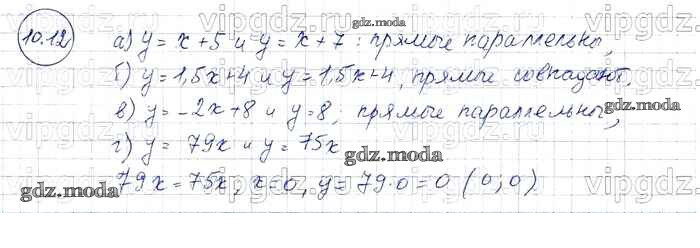 10.12
а) y = x + 5 и y = x + 7 : прямые параллельны,
б) y = 1,5x + 4 и y = 1,5x + 4, прямые совпадают.
в) y = -2x + 8 и y = 8; прямые параллельны,
г) y = 79x и y = 75x
79x = 75x, x = 0, y = 79·0 = 0 (0; 0)
gdz.moda
gdz.moda
gdz.moda
gdz.moda
gdz.moda
vipgdz.ru